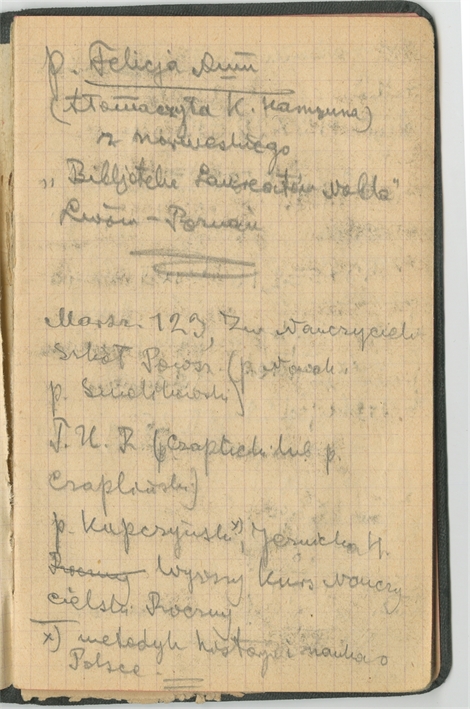 p. Felicja
(tłomaczyła K. Hamsuna)
z norweskiego
„Bibljoteka Laureatów Nobla"
Lwów – Poznań
Marsz. 123, Zw Nauczyciel.
Szkół Powsz. (p. Nowak
p.
T. U. R. (Czapliński lub p.
Czapliński)
p. Kupczyński x), H.
Roczny Wyższy Kurs Nauczy
cielski Roczny
x) metodyk historji i nauka o
Polsce